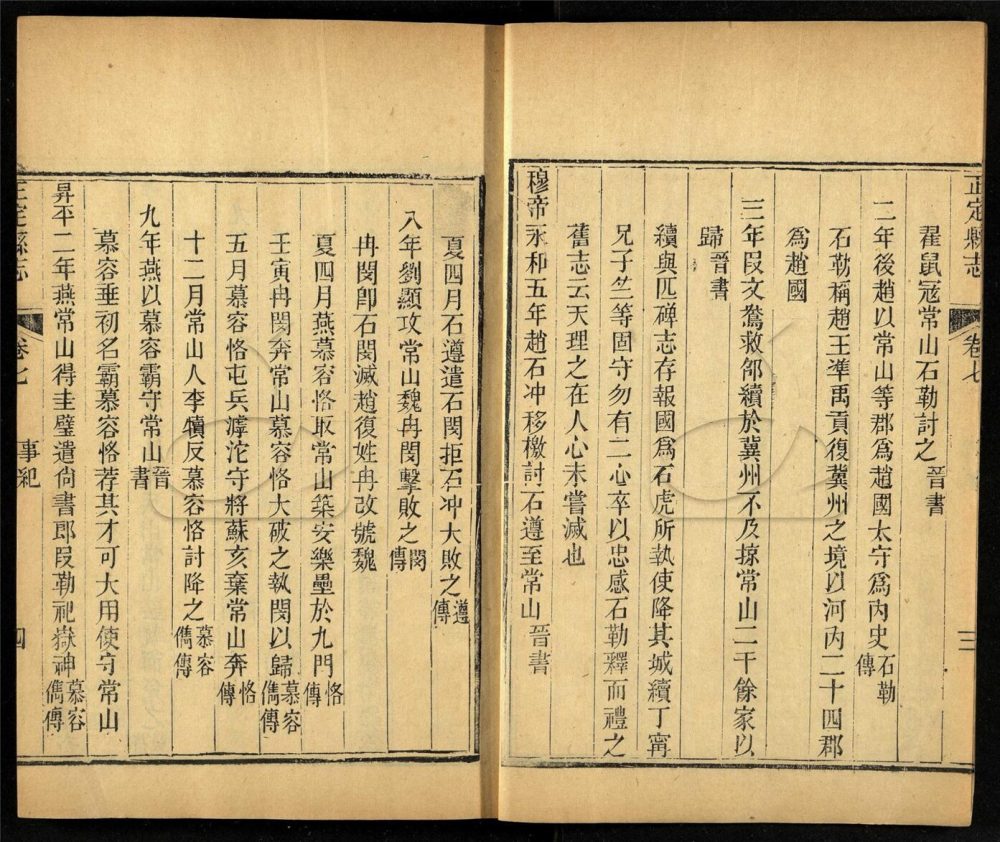 正定縣志
卷七
三
翟鼠冦常山石勒討之晉書
二年後趙以常山等郡爲趙國太守爲內史石勒傳
石勒稱趙王準禹貢復冀州之境以河內二十四郡
爲趙國
三年段文鴦救邵續於冀州不及掠常山二千餘家以
歸晉書
續與匹磾志存報國爲石虎所執使降其城續丁寧
兄子竺等固守勿有二心卒以忠感石勒釋而禮之
舊志云天理之在人心未嘗滅也
穆帝永和五年趙石冲移檄討石遵至常山晉書
夏四月石遵遣石閔拒石冲大敗之遵傳
八年劉顯攻常山魏冉閔擊敗之閔傳
冉閔卽石閔滅趙復姓冉改號魏
夏四月燕慕容恪取常山築安樂壘於九門恪傳
壬寅冉閔奔常山慕容恪大破之執閔以歸慕容儁傳
五月慕容恪屯兵滹沱守將蘇亥棄常山奔恪傳
十二月常山人李犢反慕容恪討降之慕容儁傳
九年燕以慕容霸守常山晉書
慕容垂初名霸慕容恪荐其才可大用使守常山
昇平二年燕常山得圭璧遣尙書郎段勒祀嶽神慕容儁傳
正定縣志
卷七
事紀
四